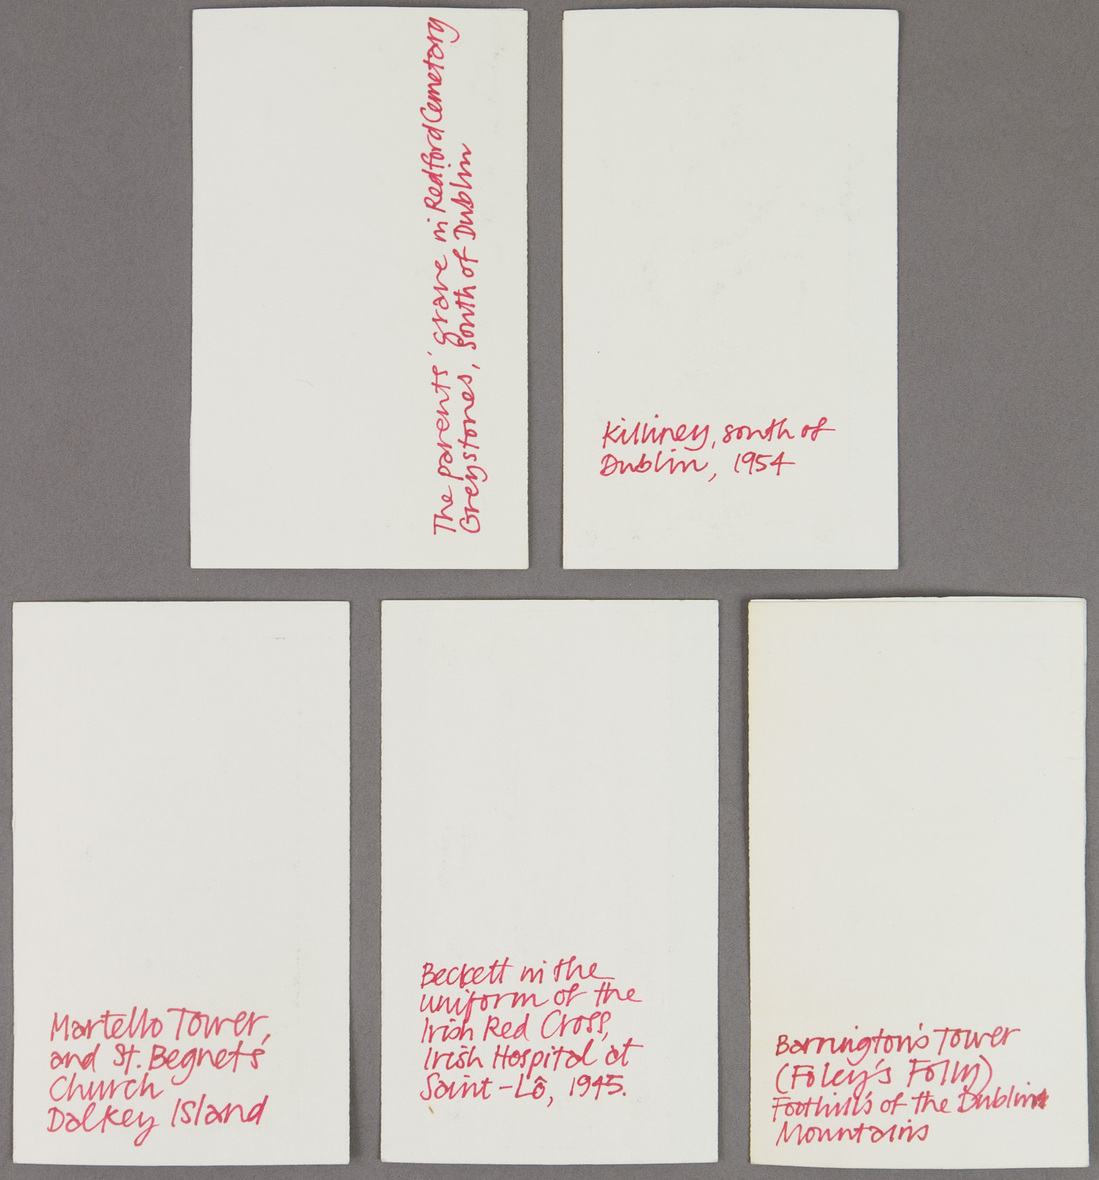 The parents' grave in Redford Cemetary
Greystones, South of Dublin
Killiney, south of
Dublin, 1954
Martello Tower,
and St. Begnet's
Church
Dalkey Island
Beckett in the
uniform of the
Irish Red Cross,
Irish Hospital at
Saint-Lô, 1945.
Barrington's Tower
(Foley's Folly)
Foothills of the Dublin
Mountains